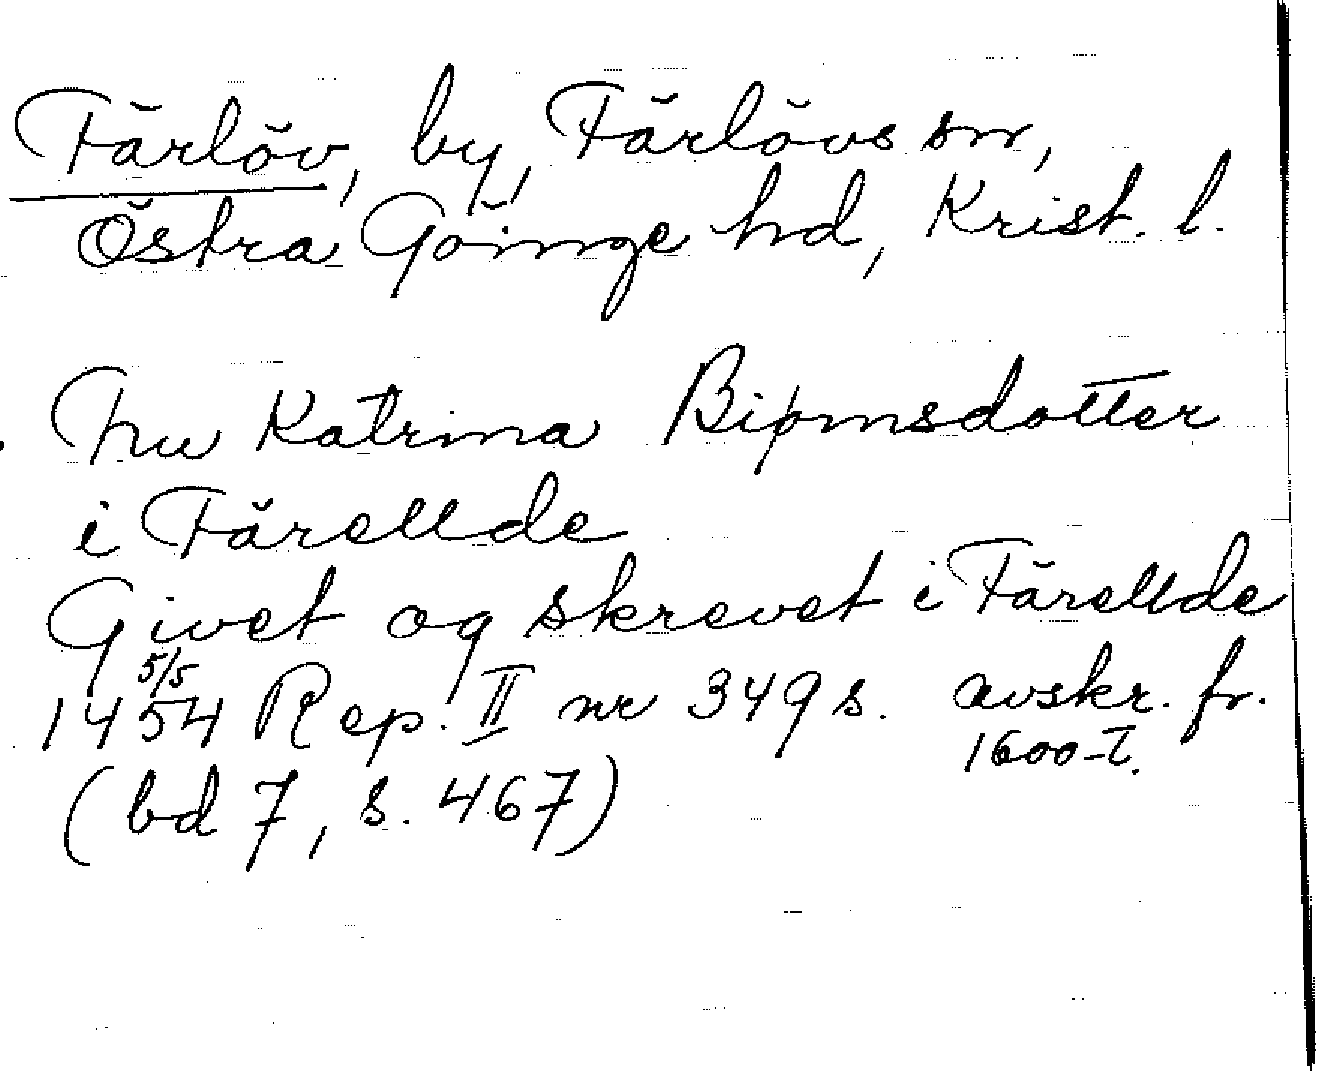 Färlöv, by, Färlövs sn,
Östra Göinge hd, Krist. l.
hu Katrina Bipmsdotter
i Färellde
Givet og skrevet i Färellde
5/5
1454 Rep. II nr 349 s. avskr. fr.
1600-t.
(bd 7, s. 467)